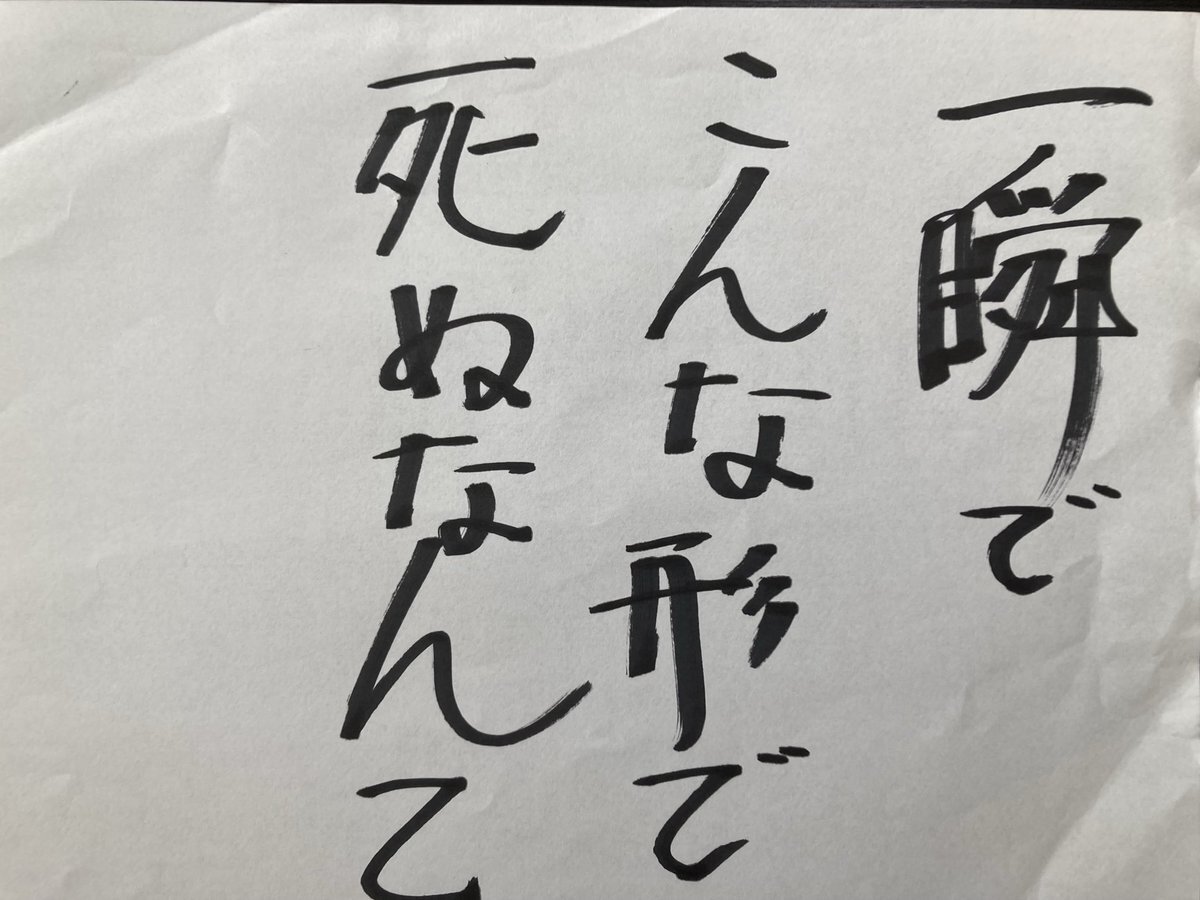 一瞬で
こんな形で
死ぬなんて